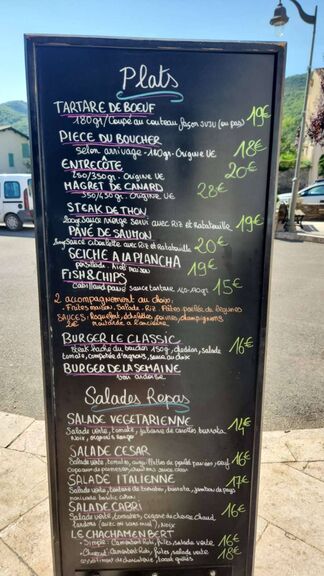 Plats
TARTARE DE BOEUF 19€
180gr/Coupé au couteau façon JUJU (ou pas)
PIECE DU BOUCHER 18€
selon arrivage - 180gr - Origine UE
ENTRECÔTE 20€
250/350gr. Origine UE
MAGRET DE CANARD 22€
350/450 gr. Origine UE
STEAK DE THON 19€
200gr Sauce vierge servi avec Riz et Ratatouille
PAVÉ DE SAUMON 20€
Sauce ciboulette avec Riz et Ratatouille
SEICHE A LA PLANCHA 19€
persillade
FISH & CHIPS 15€
Cabillaud pané sauce tartare
2 accompagnement au choix:
Frites maison. Salade. Riz. Poêlée de légumes
SAUCES: Roquefort, échalotes, poivre, champignons
2€ moutarde à l'ancienne
BURGER LE CLASSIC 16€
Steak haché du boucher 150g, cheddar, salade
tomate, compotée d'oignons, sauce au choix
BURGER DE LA SEMAINE
voir ardoise
Salades Repas
SALADE VEGETARIENNE 14€
Salade verte, tomate, julienne de carottes burrata
Noix
SALADE CESAR 16€
Salade verte, tomate, oeuf, filets de poulet panées
Copeaux de parmesan, croûtons sauce césar
SALADE ITALIENNE 17€
Salade verte, tomates, burrata, jambon de pays
basilic citron
SALADE CABRI 16€
Salade verte, tomates, chèvre chaud
lardons (avec ou sans miel), Noix
LE CHACHAMENBERT
- Simple: Camembert Roti, frites, salade verte 16€
- Chacha: Camembert Roti, frites, salade verte 18€
assortiment de charcuterie